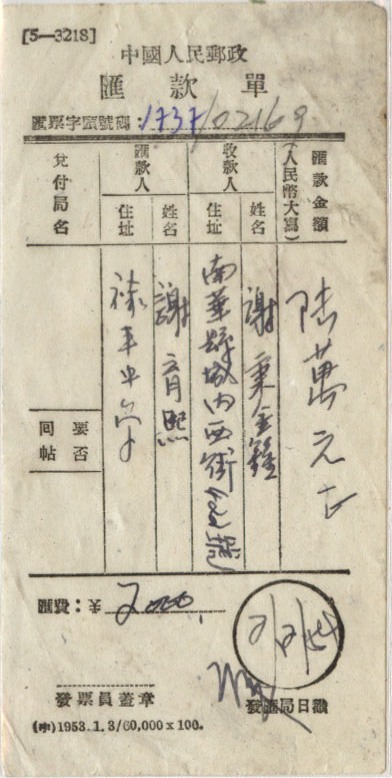 [5—3218]
中國人民郵政
匯款單
匯票字頭號碼：1737/02169
匯款金額
（人民幣大寫）
陸萬元正
收款人
姓名
謝秉金
住址
南華縣城內西街
匯款人
姓名
謝育熙
住址
祿丰中學
兌付局名
要否
回帖
匯費：
2000
發票員蓋章
發匯局日戳
(申)1953.1.3/60,000x100.